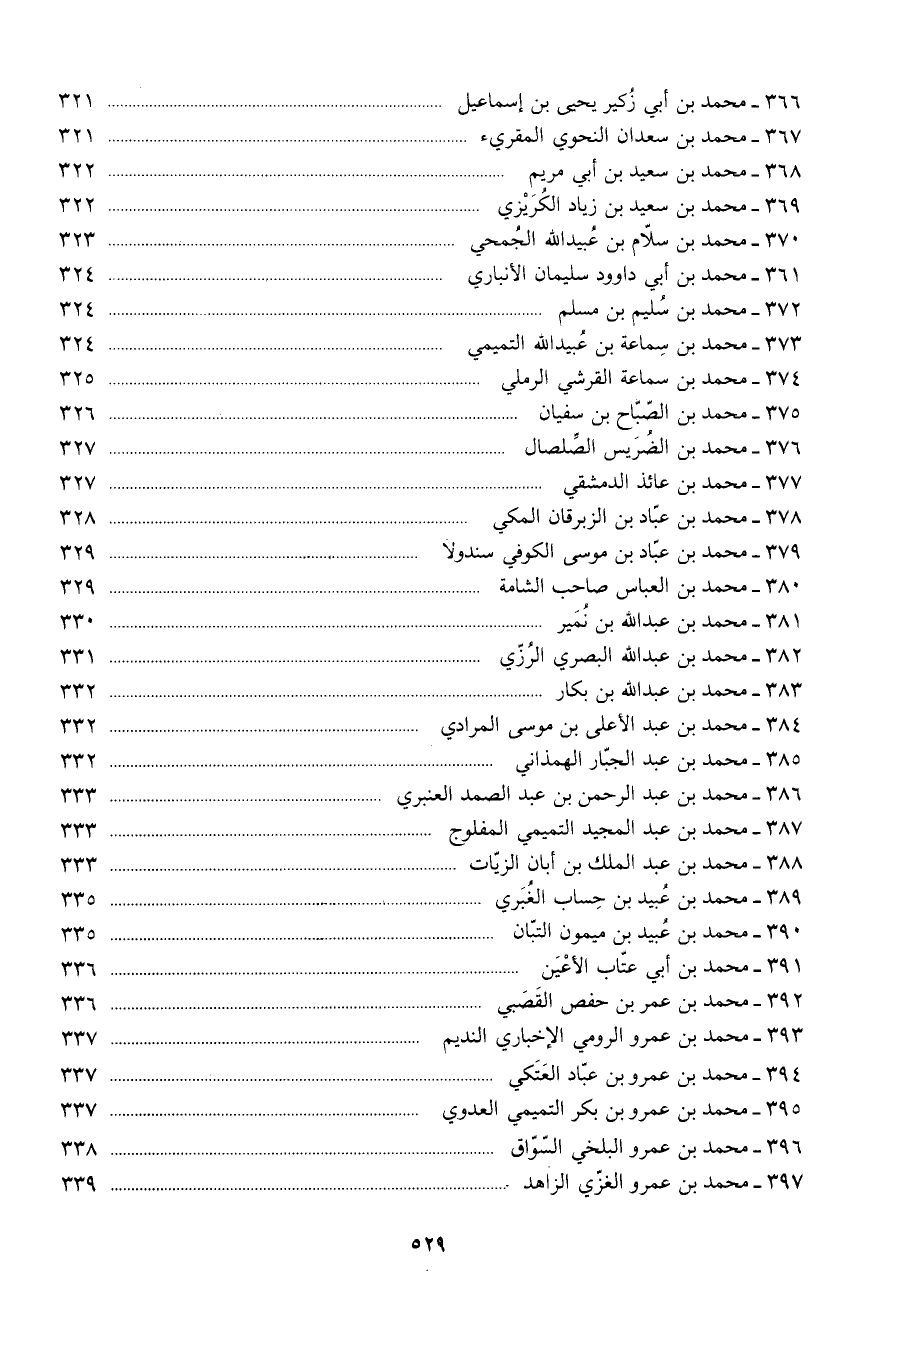 ٣٦٦ ـ محمد بن أبي زُكير يحيى بن إسماعيل ........ ٣٢١
٣٦٧ ـ محمد بن سعدان النحوي المقريء ........ ٣٢١
٣٦٨ ـ محمد بن سعيد بن أبي مريم ........ ٣٢٢
٣٦٩ ـ محمد بن سعيد بن زياد الكُرَيْزي ........ ٣٢٢
٣٧٠ ـ محمد بن سلّام بن عُبيدالله الجُمحي ........ ٣٢٣
٣٦١ ـ محمد بن أبي داوود سليمان الأنباري ........ ٣٢٤
٣٧٢ ـ محمد بن سُليم بن مسلم ........ ٣٢٤
٣٧٣ ـ محمد بن سِماعة بن عُبيدالله التميمي ........ ٣٢٤
٣٧٤ ـ محمد بن سماعة القرشي الرملي ........ ٣٢٥
٣٧٥ ـ محمد بن الصّبّاح بن سفيان ........ ٣٢٦
٣٧٦ ـ محمد بن الضُرَيس الصِّلصال ........ ٣٢٧
٣٧٧ ـ محمد بن عائذ الدمشقي ........ ٣٢٧
٣٧٨ ـ محمد بن عبّاد بن الزبرقان المكي ........ ٣٢٨
٣٧٩ ـ محمد بن عبّاد بن موسى الكوفي سندولا ........ ٣٢٩
٣٨٠ ـ محمد بن العباس صاحب الشامة ........ ٣٢٩
٣٨١ ـ محمد بن عبدالله بن نُمَير ........ ٣٣٠
٣٨٢ ـ محمد بن عبدالله البصري الرُزّي ........ ٣٣١
٣٨٣ ـ محمد بن عبدالله بن بكار ........ ٣٣٢
٣٨٤ ـ محمد بن عبد الأعلى بن موسى المرادي ........ ٣٣٢
٣٨٥ ـ محمد بن عبد الجبّار الهمذاني ........ ٣٣٢
٣٨٦ ـ محمد بن عبد الرحمن بن عبد الصمد العنبري ........ ٣٣٣
٣٨٧ ـ محمد بن عبد المجيد التميمي المفلوج ........ ٣٣٣
٣٨٨ ـ محمد بن عبد الملك بن أبان الزيّات ........ ٣٣٣
٣٨٩ ـ محمد بن عُبيد بن حِساب الغُبَري ........ ٣٣٥
٣٩٠ ـ محمد بن عُبيد بن ميمون التبّان ........ ٣٣٥
٣٩١ ـ محمد بن أبي عتّاب الأعْيَن ........ ٣٣٦
٣٩٢ ـ محمد بن عمر بن حفص القَصَبي ........ ٣٣٦
٣٩٣ ـ محمد بن عمرو الرومي الإخباري النديم ........ ٣٣٧
٣٩٤ ـ محمد بن عمرو بن عبّاد العَتَكي ........ ٣٣٧
٣٩٥ ـ محمد بن عمرو بن بكر التميمي العدوي ........ ٣٣٧
٣٩٦ ـ محمد بن عمرو البلخي السّوّاق ........ ٣٣٨
٣٩٧ ـ محمد بن عمرو الغزّي الزاهد ........ ٣٣٩
٥٢٩